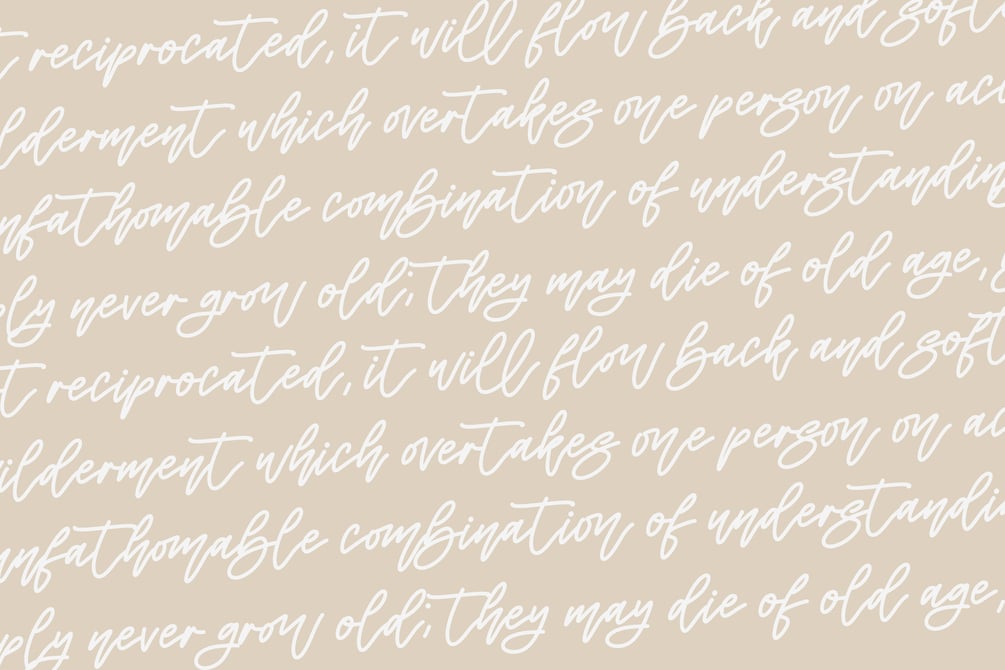 t reciprocated, it will flow back and soft
lderment which overtakes one person on acc
nfathomable combination of understandin
ply never grow old; They may die of old age,
t reciprocated, it will flow back and soft
ilderment which overtakes one person on a
unfathomable combination of understandi
ply never grow old; They may die of old age,